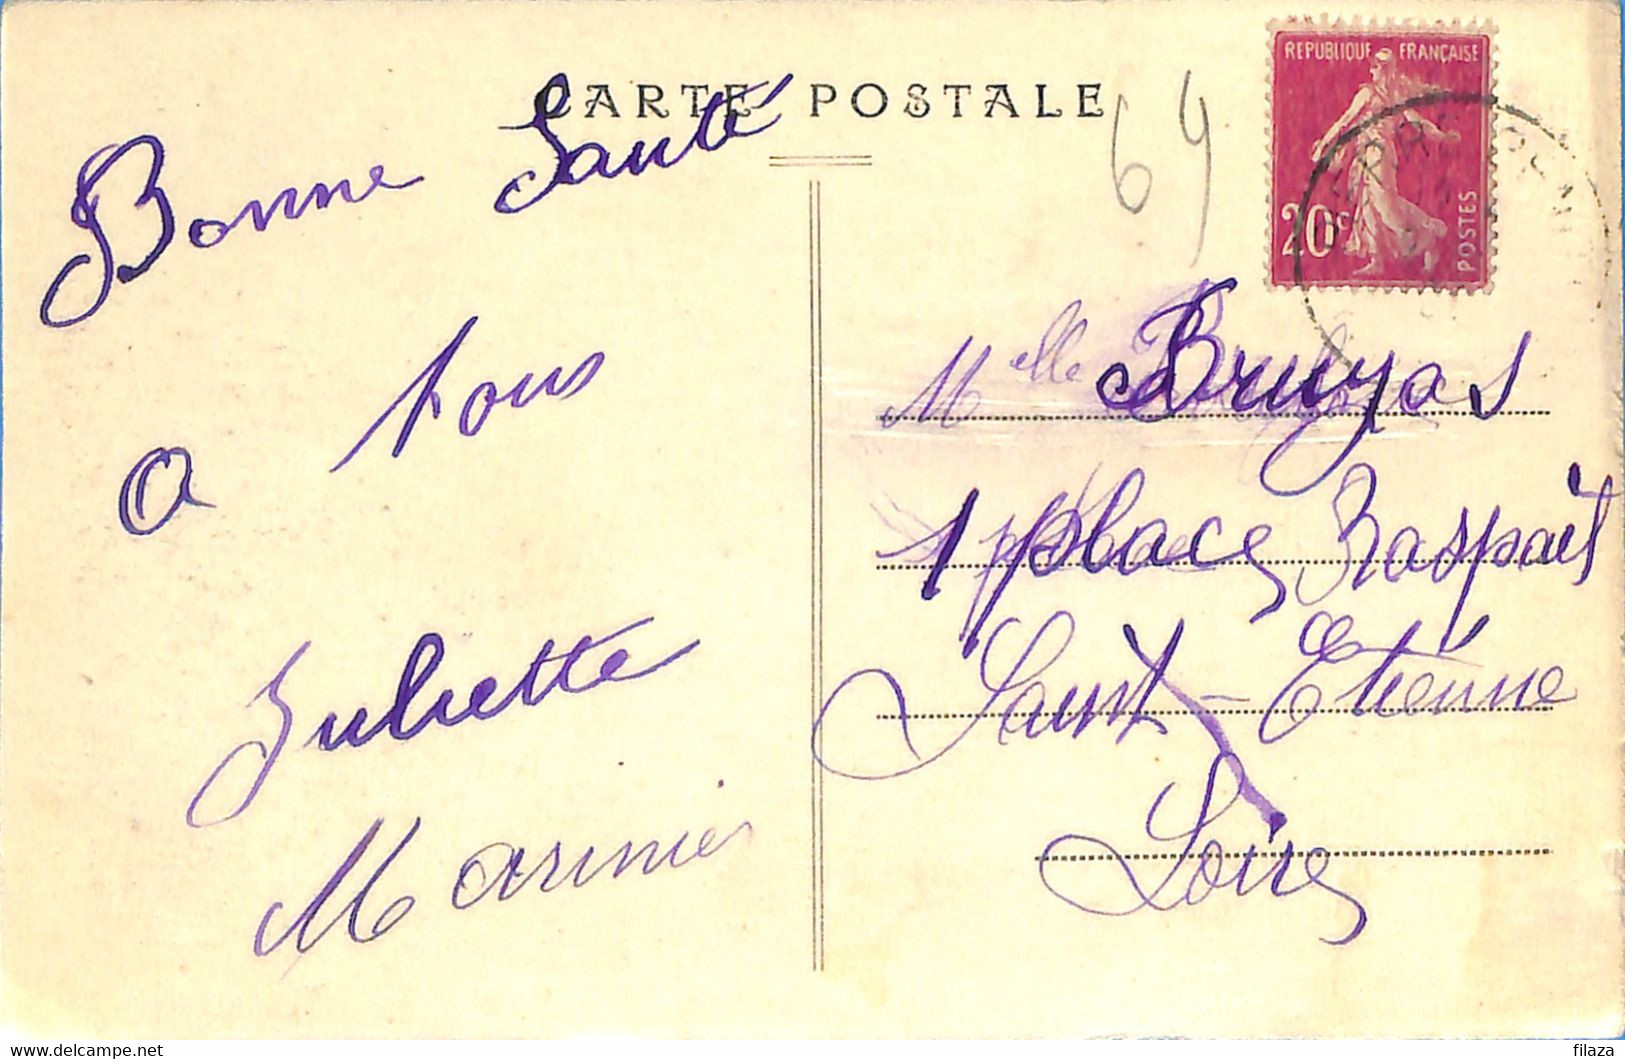 CARTE POSTALE
Bonne Santé
a tous
Juliette
Marinier
69
REPUBLIQUE FRANÇAISE
20c
POSTES
Melle Bruyas
1 place Raspail
Saint-Etienne
Loire
www.delcampe.net
filaza